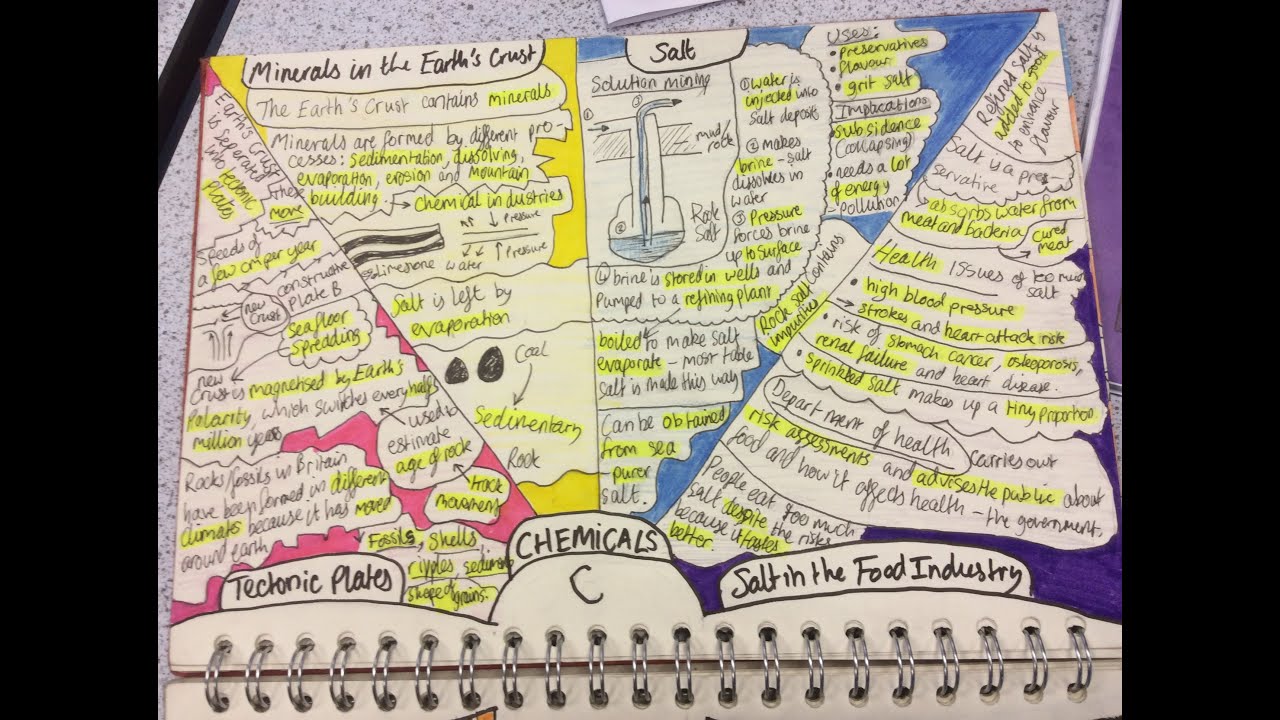 Minerals in the Earth's Crust
The Earth's Crust contains minerals
Minerals are formed by different pro-
cesses: sedimentation, dissolving,
evaporation, erosion and mountain
building. → chemical industries
↓ Pressure
↑ Pressure
limestone water
Salt is left by
evaporation
Coal
Sedimentary
Rock
Earth's Crust
is Seperated
into tectonic
Plates
these
move
Speeds of
a few cm per year
constructive
Plate B
new
Crust
Seafloor
Spreading
new
Crust is magnetised by Earth's
Polarity which switches every half
million years
used to
estimate
age of rock
track
movement
Rocks/fossils in Britain
have been formed in different
climates because it has moved
around earth
Fossils, shells
ripples, sediment
shape of grains.
Tectonic Plates
CHEMICALS
C
Salt
Solution mining
①
③
mud/
rock
②
Rock
Salt
① water is
injected into
Salt deposit
② makes
brine - salt
dissolves in
water
③ Pressure
forces brine
up to surface
④ brine is stored in wells and
Pumped to a refining plant
boiled to make salt
evaporate - most table
salt is made this way
Can be obtained
from sea
purer
salt.
Rock salt contains
impurities
Uses:
• preservatives
• flavour
• grit salt
Implications
subsidence
(collapsing)
• needs a lot
of energy
- pollution
Refined salt is
added to food
to enhance
flavour
Salt is a pres-
ervative
→ absorbs water from
meat and bacteria
cured
meat
Health issues of too much
salt
• high blood pressure
→ strokes and heart attack risk
• risk of stomach cancer, osteoporosis,
renal failure and heart disease.
• sprinkled salt makes up a tiny proportion.
Department of health carries out
risk assessments and advises the public about
food and how it affects health - the government.
People eat too much
salt despite the risks
because it tastes
better.
Salt in the Food Industry